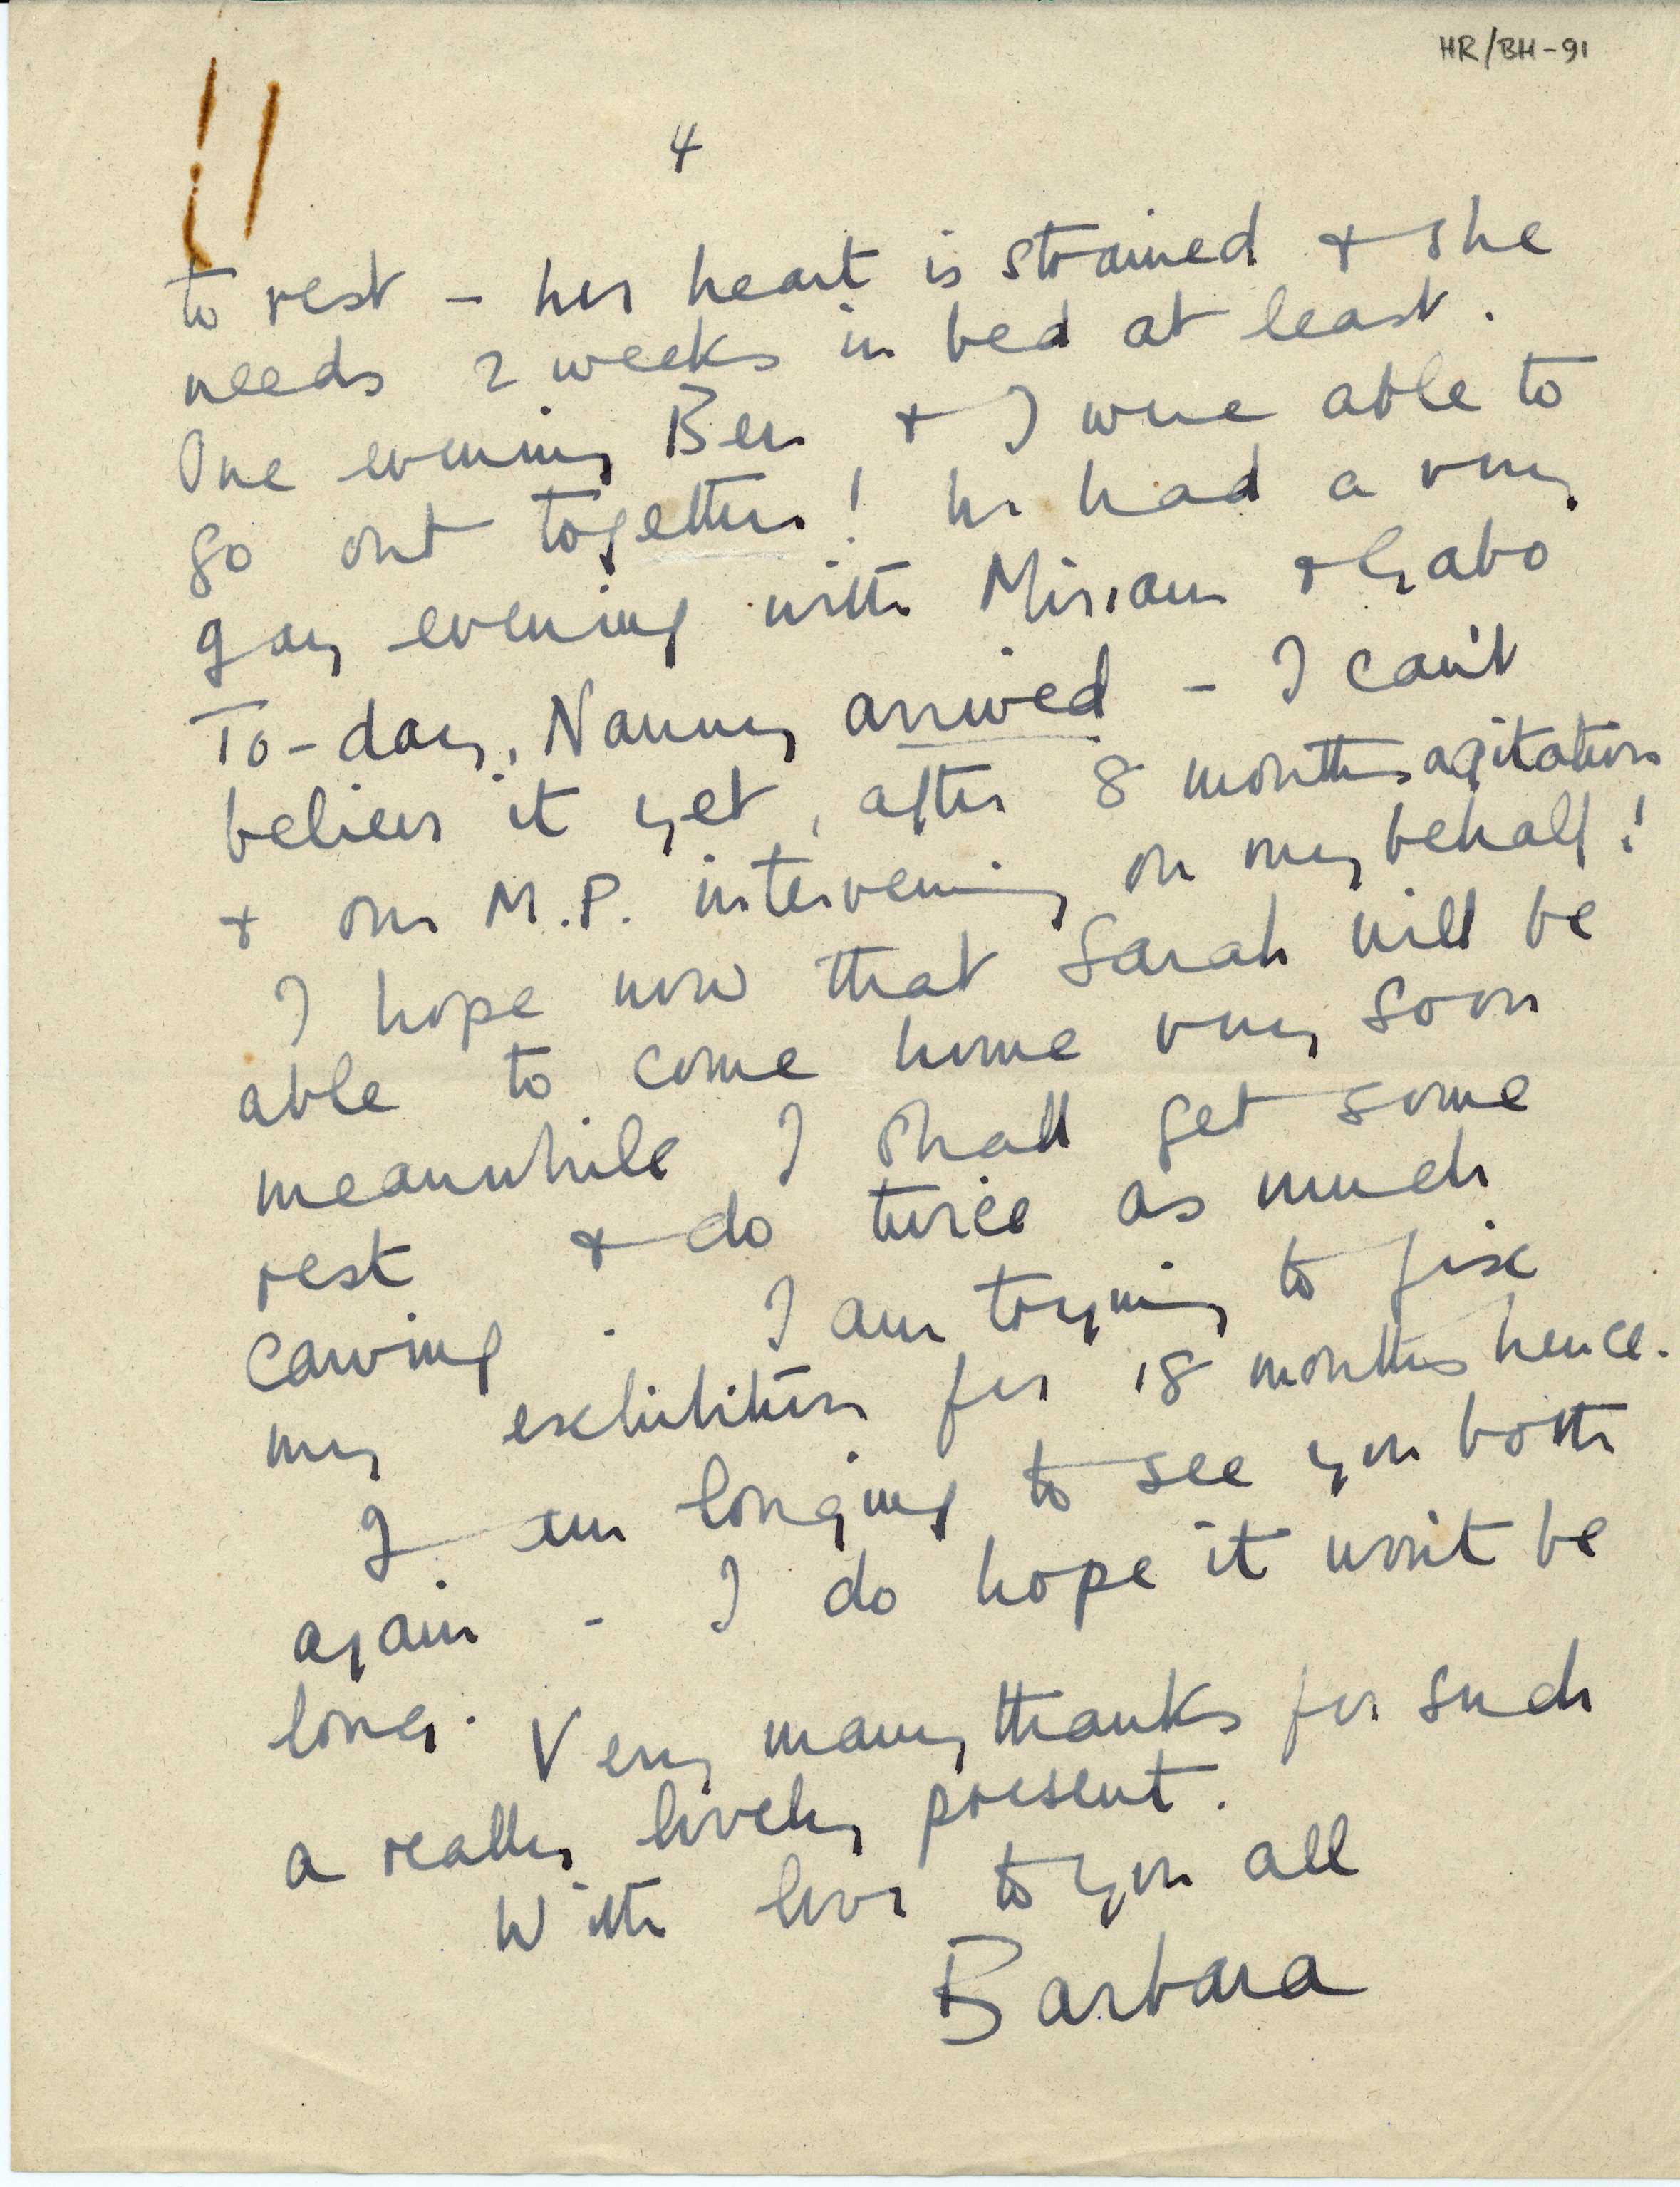 HR/BH-91
4
to rest - her heart is strained + she
needs 2 weeks in bed at least.
One evening Ben + I were able to
go out together! We had a very
gay evening with Miriam + Gabo
To-day, Nanny arrived - I can't
believe it yet, after 8 months agitation
+ our M.P. intervening on my behalf!
I hope now that Sarah will be
able to come home very soon
meanwhile I shall get some
rest + do twice as much
carving. I am trying to fix
my exhibition for 18 months hence.
I am longing to see you both
again - I do hope it won't be
long. Very many thanks for such
a really lovely present.
With love to you all
Barbara